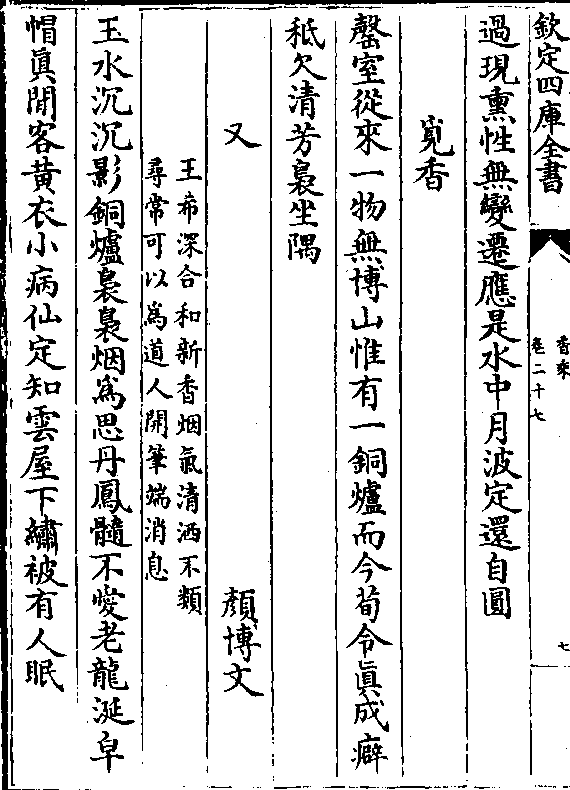 欽定四庫全書
香乘
卷二十七
七
過現熏性無變遷應是水中月波定還自圓
覓香
罄室從來一物無博山惟有一銅爐而今荀令眞成癖
秪欠清芳裊坐隅
又
顏博文
王希深合和新香烟氣清洒不類
尋常可以為道人開筆端消息
玉水沉沉影銅爐裊裊烟為思丹鳳髓不愛老龍涎皁
帽眞閒客黄衣小病仙定知雲屋下繡被有人眠